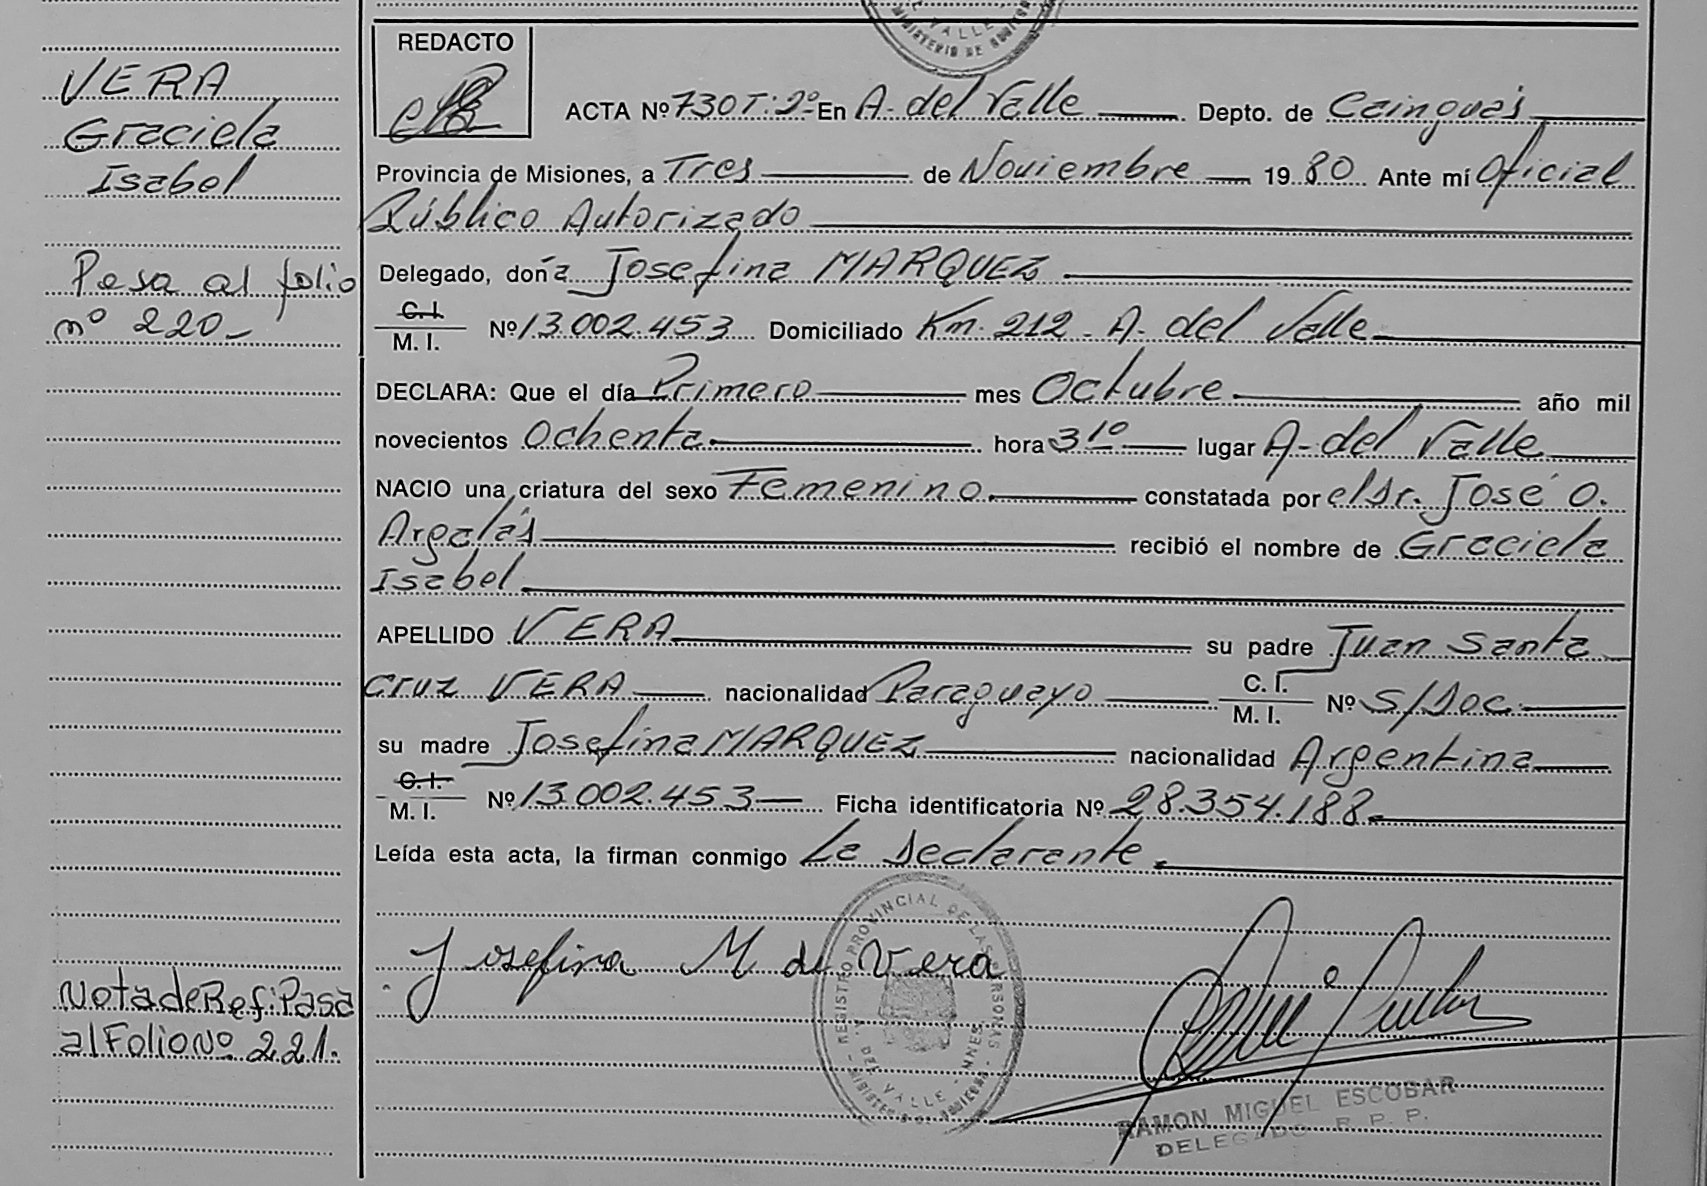 VERA
Graciela
Isabel
Pasa al folio
nº 220-
Nota de Ref: Pasa
al Folio Nº 221.
MINISTERIO DE GOBIERNO
REDACTO
ACTA Nº 730 T: 2º En A. del Valle Depto. de Cainguás
Provincia de Misiones, a Tres de Noviembre 19 80 Ante mí Oficial
Público Autorizado
Delegado, doña Josefina MARQUEZ
C. I.
M. I. Nº 13.002.453 Domiciliado Km. 212 - A. del Valle
DECLARA: Que el día Primero mes Octubre año mil
novecientos Ochenta hora 3 10 lugar A. del Valle
NACIO una criatura del sexo Femenino constatada por el Dr. José O.
Argalás recibió el nombre de Graciela
Isabel
APELLIDO VERA su padre Juan Santa
Cruz VERA nacionalidad Paraguayo C. I. M. I. Nº S/Doc.
su madre Josefina MARQUEZ nacionalidad Argentina
C. I.
M. I. Nº 13.002.453 Ficha identificatoria Nº 28.354.188
Leída esta acta, la firman conmigo La Declarante.
Josefina M de Vera
REGISTRO PROVINCIAL DE LAS PERSONAS
A. DEL VALLE - MNES
MINISTERIO DE GOBIERNO
RAMON MIGUEL ESCOBAR
DELEGADO R. P. P.